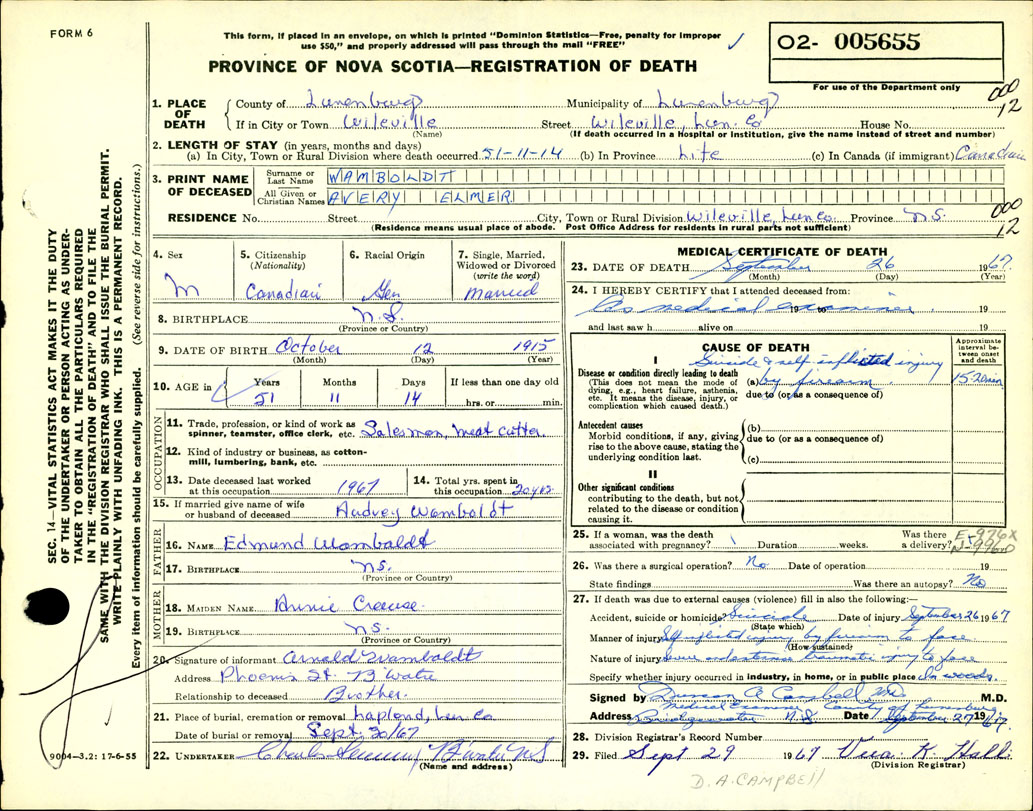 FORM 6
This form, if placed in an envelope, on which is printed "Dominion Statistics—Free, penalty for improper
use $50," and properly addressed will pass through the mail "FREE"
02- 005655
For use of the Department only
PROVINCE OF NOVA SCOTIA—REGISTRATION OF DEATH
000
12
1. PLACE OF DEATH County of Lunenburg Municipality of Lunenburg
If in City or Town Wileville Street Wileville, Lun. Co House No.
(Name) (If death occurred in a Hospital or Institution, give the name instead of street and number)
2. LENGTH OF STAY (in years, months and days)
(a) In City, Town or Rural Division where death occurred 51-11-14 (b) In Province Life (c) In Canada (if immigrant) Canadian
3. PRINT NAME OF DECEASED Surname or Last Name WAMBOLDT
All Given or Christian Names AVERY ELMER
RESIDENCE No. Street City, Town or Rural Division Wileville, Lun Co. Province N.S.
000
12
(Residence means usual place of abode. Post Office Address for residents in rural parts not sufficient)
4. Sex M
5. Citizenship (Nationality) Canadian
6. Racial Origin Ger
7. Single, Married, Widowed or Divorced (write the word) Married
8. BIRTHPLACE N.S.
(Province or Country)
9. DATE OF BIRTH October 12 1915
(Month) (Day) (Year)
10. AGE in Years Months Days If less than one day old
51 11 14 hrs. or min.
OCCUPATION
11. Trade, profession, or kind of work as spinner, teamster, office clerk, etc. Salesman, meat cutter.
12. Kind of industry or business, as cotton-mill, lumbering, bank, etc.
13. Date deceased last worked at this occupation 1967
14. Total yrs. spent in this occupation 20 yrs
15. If married give name of wife or husband of deceased Audrey Wamboldt
FATHER
16. NAME Edmund Wamboldt
17. BIRTHPLACE N.S.
(Province or Country)
MOTHER
18. MAIDEN NAME Annie Creause
19. BIRTHPLACE N.S.
(Province or Country)
20. Signature of informant Arnold Wamboldt
Address Phoenix St. B'Water
Relationship to deceased Brother.
21. Place of burial, cremation or removal Lapland, Lun Co.
Date of burial or removal Sept. 30/67
22. UNDERTAKER Charles B'Water N.S
(Name and address)
MEDICAL CERTIFICATE OF DEATH
23. DATE OF DEATH September 26 1967
(Month) (Day) (Year)
24. I HEREBY CERTIFY that I attended deceased from:
As medical examiner 19 to 19
and last saw h alive on 19
CAUSE OF DEATH
Approximate interval between onset and death
I
Disease or condition directly leading to death
(This does not mean the mode of dying, e.g., heart failure, asthenia, etc. It means the disease, injury, or complication which caused death.)
Suicide & self inflicted injury
(a) by firearm 15-20 min
due to (or as a consequence of)
Antecedent causes
Morbid conditions, if any, giving rise to the above cause, stating the underlying condition last.
(b)
due to (or as a consequence of)
(c)
II
Other significant conditions
contributing to the death, but not related to the disease or condition causing it.
25. If a woman, was the death associated with pregnancy? Duration weeks. Was there a delivery?
26. Was there a surgical operation? No Date of operation 19
State findings Was there an autopsy? No
27. If death was due to external causes (violence) fill in also the following:—
Accident, suicide or homicide? Suicide Date of injury September 26 1967
(State which)
Manner of injury Self inflicted injury by firearm to face
(How sustained)
Nature of injury traumatic injury to face
Specify whether injury occurred in industry, in home, or in public place In woods.
Signed by Duncan A Campbell M.D.
Medical Examiner County of Lunenburg
Address Bridgewater N.S. Date September 27 1967
28. Division Registrar's Record Number
29. Filed Sept 29 1967 K. Hall
(Division Registrar)
D. A. CAMPBELL
SEC. 14—VITAL STATISTICS ACT MAKES IT THE DUTY
OF THE UNDERTAKER OR PERSON ACTING AS UNDER-
TAKER TO OBTAIN ALL THE PARTICULARS REQUIRED
IN THE "REGISTRATION OF DEATH" AND TO FILE THE
SAME WITH THE DIVISION REGISTRAR WHO SHALL ISSUE THE BURIAL PERMIT.
WRITE PLAINLY WITH UNFADING INK. THIS IS A PERMANENT RECORD.
Every item of information should be carefully supplied. (See reverse side for instructions.)
9004–3.2: 17-6-55